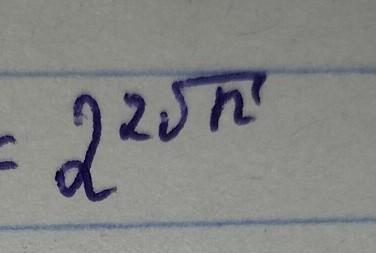 = 2^{2\sqrt{n}}